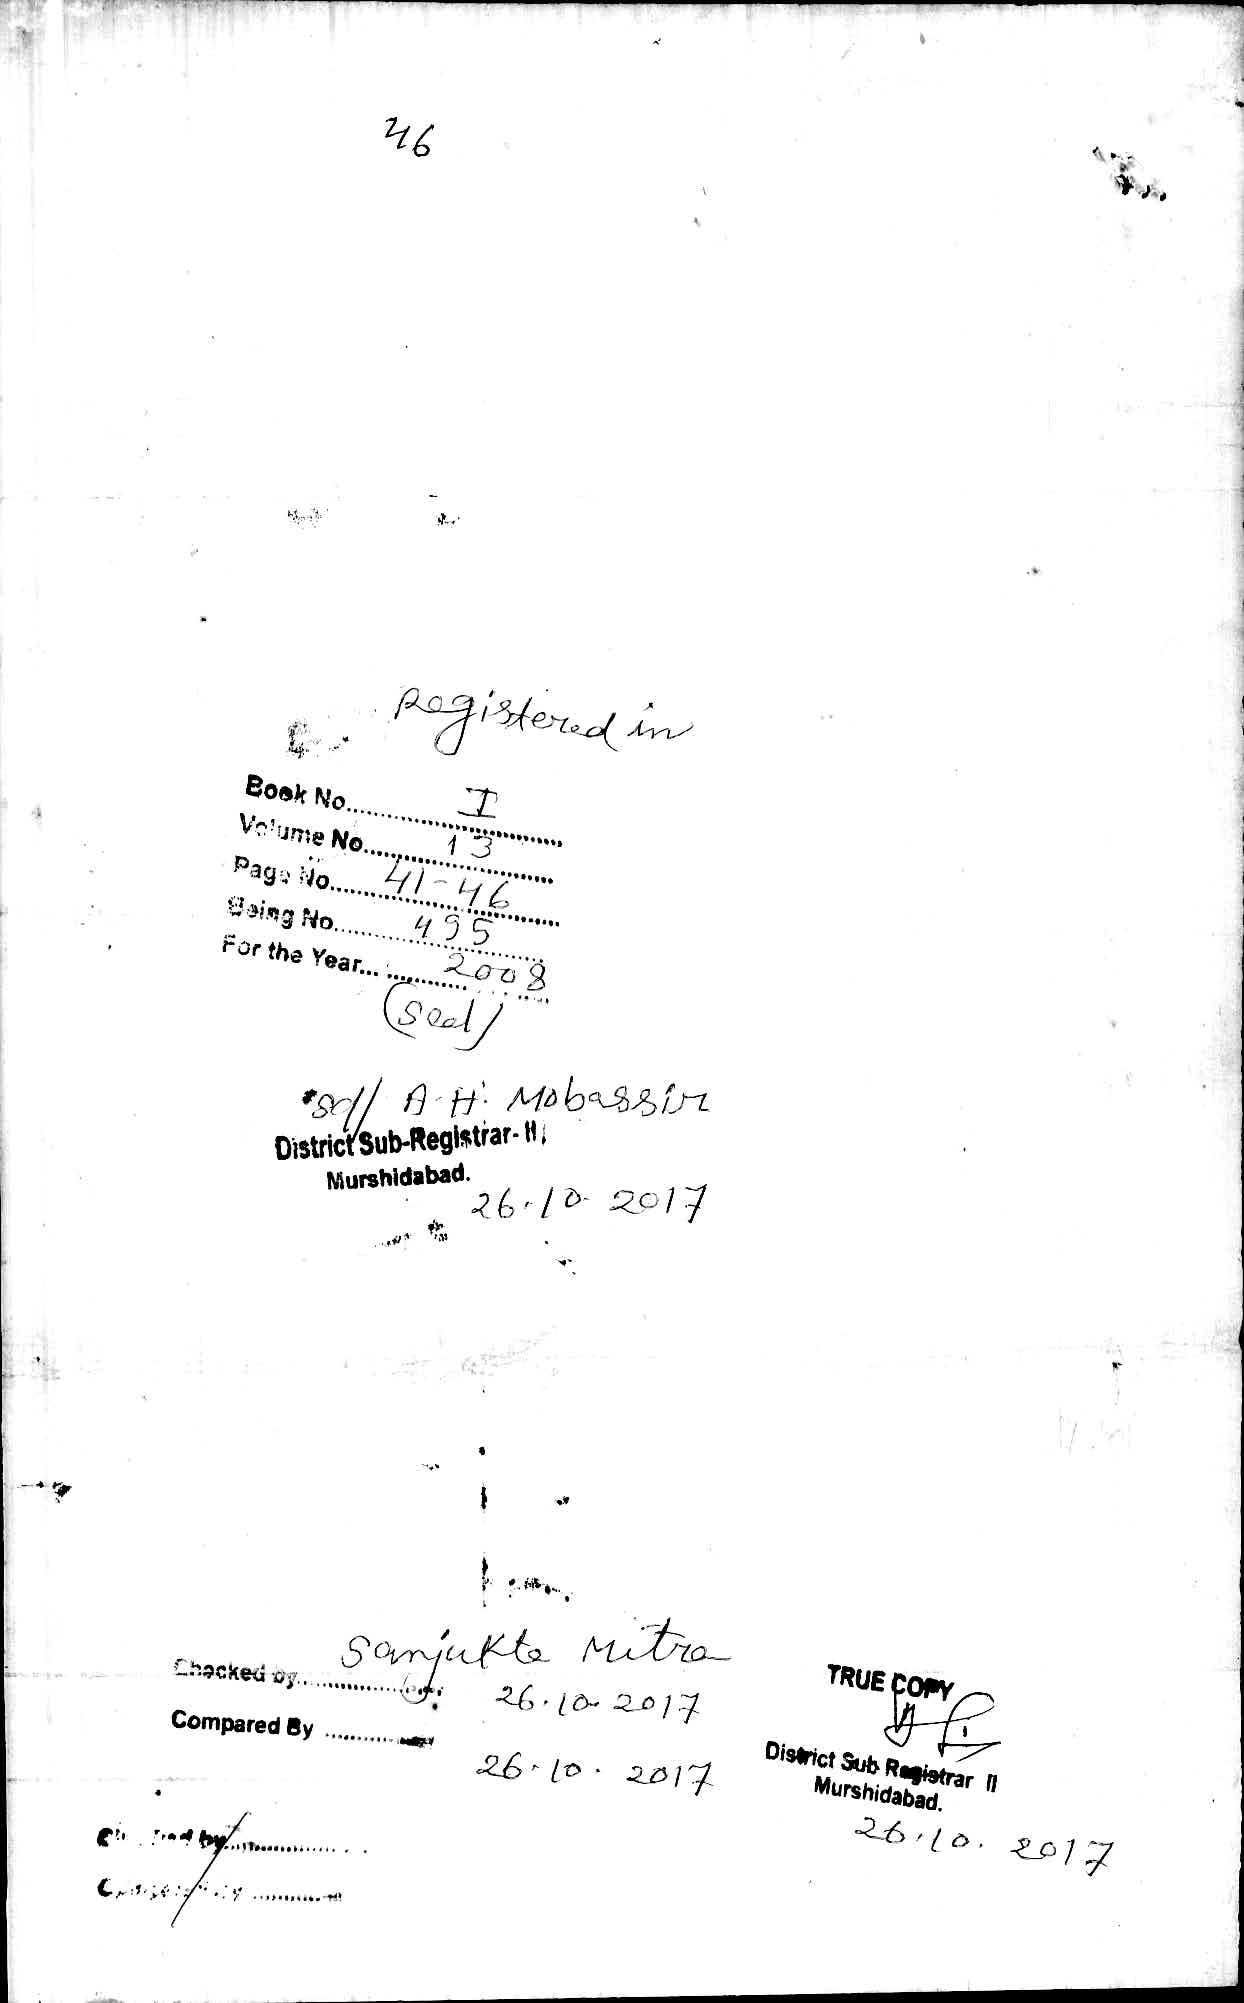 46
Registered in
Book No. I
Volume No. 13
Page No. 41-46
Being No. 495
For the Year. 2008
(Seal)
sd/ A. H. Mobassir
District Sub-Registrar- II
Murshidabad.
26.10.2017
Sanjukta Mitra
Checked by
26.10.2017
Compared By
26.10.2017
TRUE COPY
District Sub Registrar II
Murshidabad.
26.10.2017